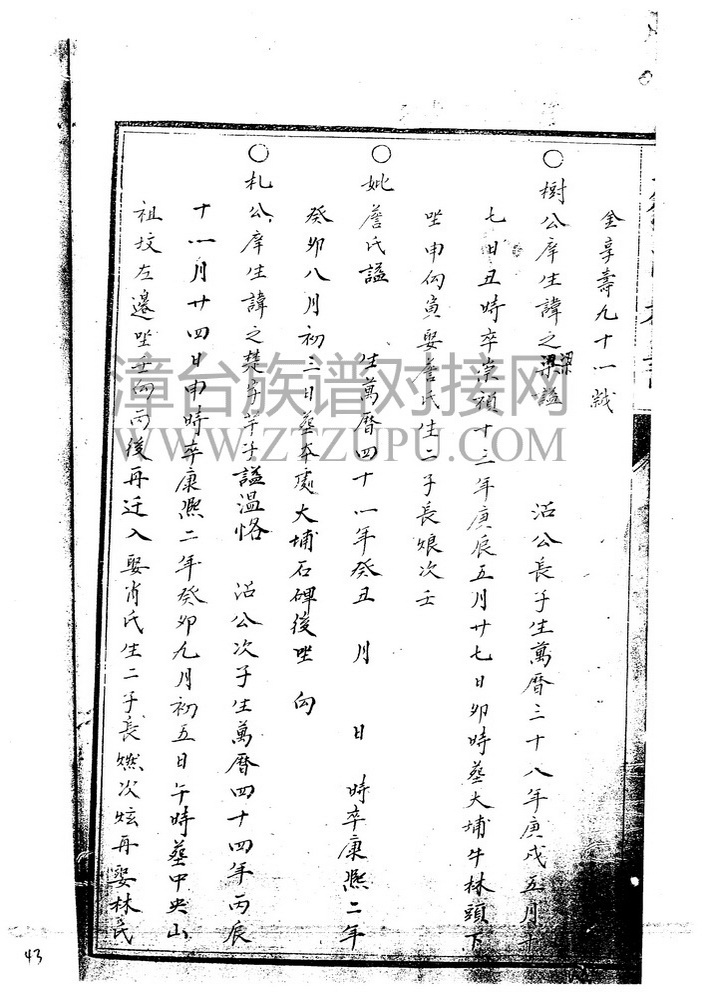 金享壽九十一歲
○樹公庠生諱之梁謚 沼公長子生萬曆三十八年庚戌五月十
梁
七日丑時卒崇禎十三年庚辰五月廿七日卯時葬大埔牛林頭下
坐申向寅娶詹氏生二子長烺次壬
○妣詹氏謚 生萬曆四十一年癸丑 月 日 時卒康熙二年
癸卯八月初三日葬本處大埔石碑後坐 向
○札公庠生諱之楚字芊子謚溫恪 沼公次子生萬曆四十四年丙辰
十一月廿四日申時卒康熙二年癸卯九月初五日午時葬中央山
祖坟左邊坐壬向丙後再迁入娶肖氏生二子長燃次炫再娶林氏
漳台族谱对接网
WWW.ZTZUPU.COM
43